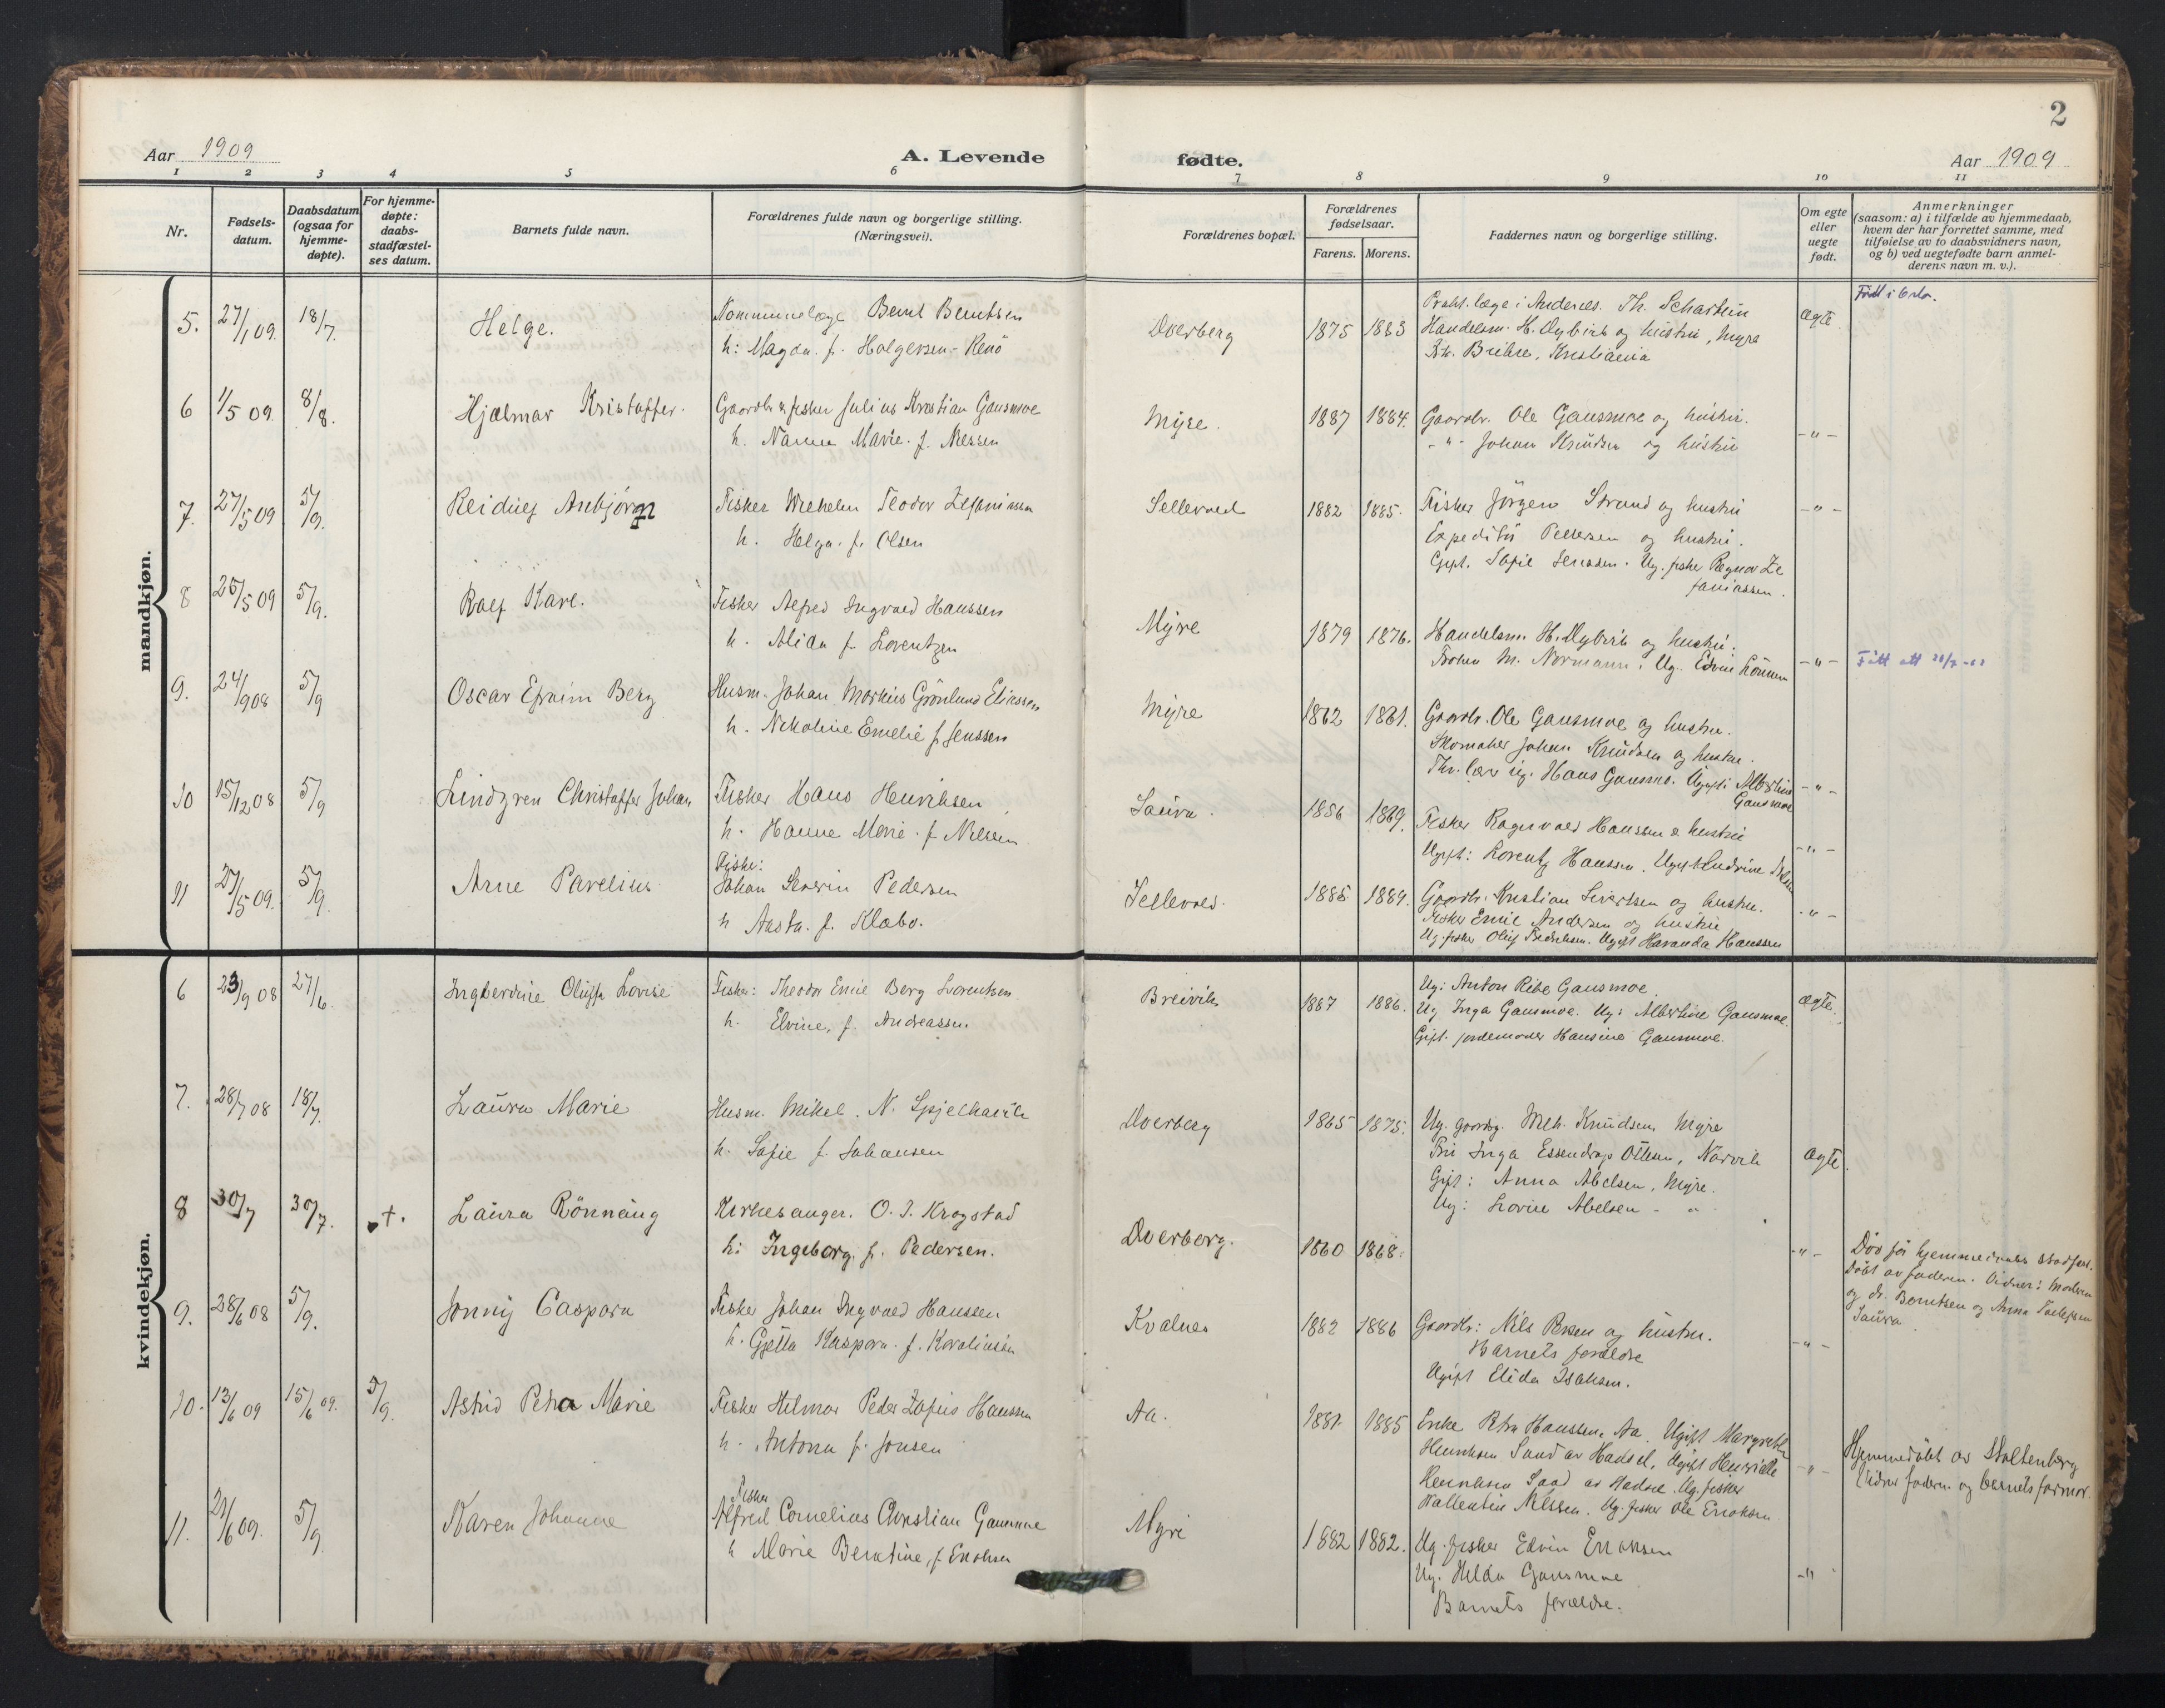 2
Aar 1909
A. Levende
fødte.
Aar 1909
1 2 3 4 5 6 7 8 9 10 11
Nr.
Fødsels-
datum.
Daabsdatum
(ogsaa for
hjemme-
døpte).
For hjemme-
døpte:
daabs-
stadfæstel-
ses datum.
Barnets fulde navn.
Forældrenes fulde navn og borgerlige stilling.
(Næringsvei).
Forældrenes bopæl.
Forældrenes
fødselsaar.
Farens. Morens.
Faddernes navn og borgerlige stilling.
Om egte
eller
uegte
født.
Anmerkninger
(saasom: a) i tilfælde av hjemmedaab,
hvem der har forrettet samme, med
tilføielse av to daabsvidners navn,
og b) ved uegtefødte barn anmel-
derens navn m. v.).
mandkjøn.
5. 27/1 09. 18/7. Helge.
Kommunelæge Bernt Berntsen
h: Magda. f. Holgersen-Renö
Dverberg 1875 1883
Prakt. læge i Andenes. Th. Scharhun
Handelsm. H. Dybvik og hustru, Myre
Kristiania
Ægte.
Født i Oslo.
6 1/5 09. 8/8. Hjalmar Kristoffer.
Gaardbr & fisker Julius Kristian Gausmoe
h. Nanna Marie. f. Nessen
Myre. 1887 1884.
Gaardbr. Ole Gausmoe og hustru.
-"- Johan Knudsen og hustru
-"-
7. 27/5 09 5/9. Reidulf Anbjörn
Fisker Wilhelm Teodor Zefaniassen
h. Helga. f. Olsen
Sellevold 1882 1885.
Fisker Jörgen Strand og hustru
Expeditör Pettersen og hustru.
Gift. Sofie Jenssen. Ug. fisker Regnor Ze
faniassen.
-"-
8 25/5 09 5/9. Rolf Kare.
Fisker Alfred Ingvald Hanssen
h. Alida f. Lorentzen
Myre 1879 1876.
Handelsm. H. Dybvik og hustru.
M. Normann. Ug. Edvin
-"-
9. 24/9 08 5/9 Oscar Efraim Berg
Husm. Johan Markus Grönlund Eliassen
h. Nikoline Emelie f. Jenssen
Myre 1862 1861.
Gaardbr. Ole Gausmoe og hustru.
Skomaker Johan Knudsen og hustru.
Hans Gausmo. Ugift Albertine
Gausmoe
-"-
10 15/12 08 5/9 Lindgren Christoffer Johan
Fisker Hans Henriksen
h. Hanne Marie. f. Nilsen.
Saura. 1856 1869.
Fisker Ragnvald Hanssen & hustru
Ugift: Lorentz Hanssen. Ugift Ludvine
-"-
11 27/5 09. 5/9. Arne Parelius.
Fisker:
Johan Severin Pedersen
h Aasta. f. Klæbo.
Sellevold. 1885 1889.
Gaardbr. Kristian Sivertsen og hustru.
Fisker Emil Andersen og hustru
Ug. fisker Oluf Fredriksen. Ugift Haranda Hanssen
-"-
kvindekjøn.
6 23/9 08 27/6. Ingberdine Oluffa Lovise
Fisker: Theodor Emil Berg Lorentsen
h. Elvine, f. Andreassen
Breivik 1887 1886.
Ug: Anton Ribe Gausmoe.
Ug Inga Gausmoe. Ug: Albertine Gausmoe.
Gift. jordemoder Hansine Gausmoe.
Ægte.
7. 28/7 08 18/7. Laura Marie
Husm. Mikal. N. Spjelkavik
h. Sofie f. Johansen
Dverberg 1865 1875.
Ug. gaardbg. Wilh. Knudsen, Myre
Fru Inga Essendrop Ottesen, Narvik
Gift: Anna Abelsen, Myre.
Ug: Lovise Abelsen - "
Ægte.
8 30/7 30/7. +. Laura Rönnaug
Kirkesanger. O. J. Krogstad
h: Ingeborg. f. Pedersen.
Dverberg. 1860 1868.
-"-
Döv för hjemmedaabs stadfæst.
Döbt av faderen. Vidner: Moderen
og dr. Berntsen og Anna Tollefsen
Saura
9. 28/6 08 5/9. Jonny Caspara
Fisker Johan Ingvald Hanssen
h. Gjetta Kaspara. f. Karoliussen
Kvalnes 1882 1886
Gaardbr: Nils Benson og hustru.
Barnets forældre
Ugift Elida Isaksen.
-"-
10. 13/6 09 15/6 09. 5/9. Astrid Petra Marie
Fisker Hilmar Peder Zafius Hanssen
h. Antona f. Jonsen
Aa. 1881. 1885
Enke Petra Hanssen, Aa. Ugift Margrethe
Henriksen Sand av Hadsel, Ugift Henriette
Henriksen Sand av Hadsel. Ug. fisker
Vallentin Nilssen. Ug. fisker Ole Eriksen
-"-
Hjemmedöbt av Stoltenberg
Vidner faderen og barnets farmor.
11. 21/6 09. 5/9. Karen Johanne
Fisker
Alfred Cornelius Christian Gausmoe
h Marie Berntine f. Eriksen
Myre 1882 1882.
Ug. fisker Edvin Eriksen
Ug. Hilda Gausmoe
Barnets forældre.
-"-